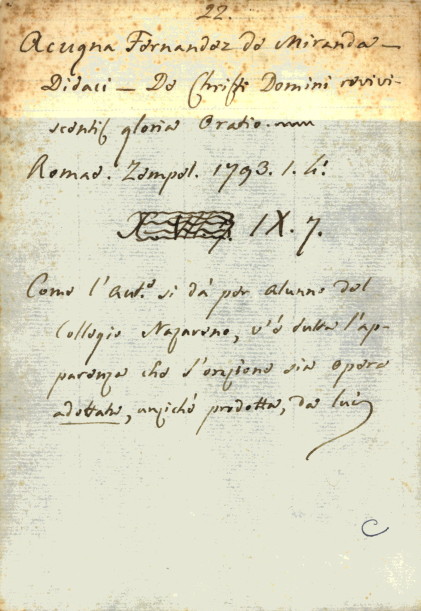 22.
Acugna Fernandez de Miranda —
Didaci — De Christi Domini revivi-
scentis gloria Oratio.
Romae. Zempel. 1793. 1. 4.°
X IX. 7.
Come l'Aut.e si dà per alunno del
Collegio Nazareno, v'è tutta l'ap-
parenza che l'orazione sia opera
adottata, anziché prodotta, da lui
C